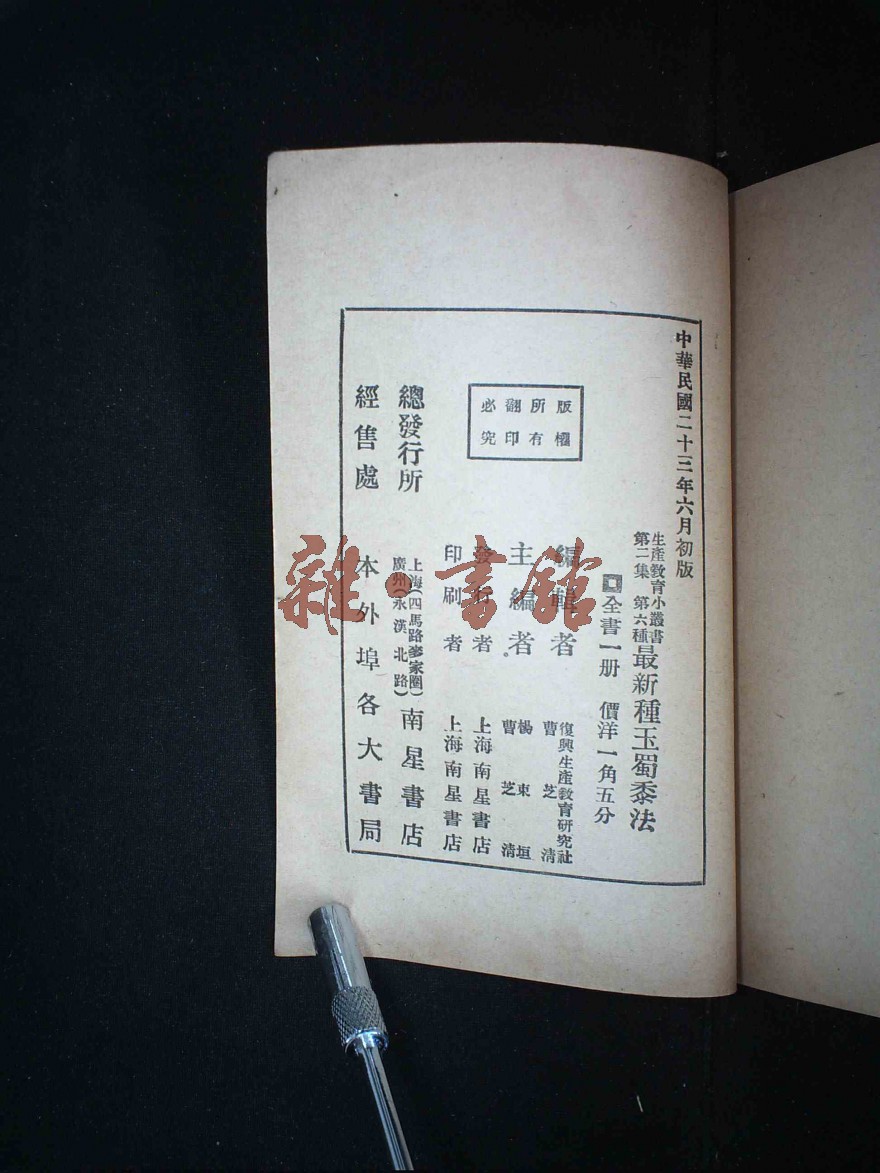 中華民國二十三年六月初版
生產教育小叢書
第二集 第六種
最新種玉蜀黍法
全書一册 價洋一角五分
版權
所有
翻印
必究
編輯者
復興生產教育研究社
曹芝清
主編者
楊東垣
曹芝清
發行者 上海南星書店
印刷者 上海南星書店
總發行所
上海(四馬路麥家圈)
廣州(永漢北路)
南星書店
經售處 本外埠各大書局
雜·書館